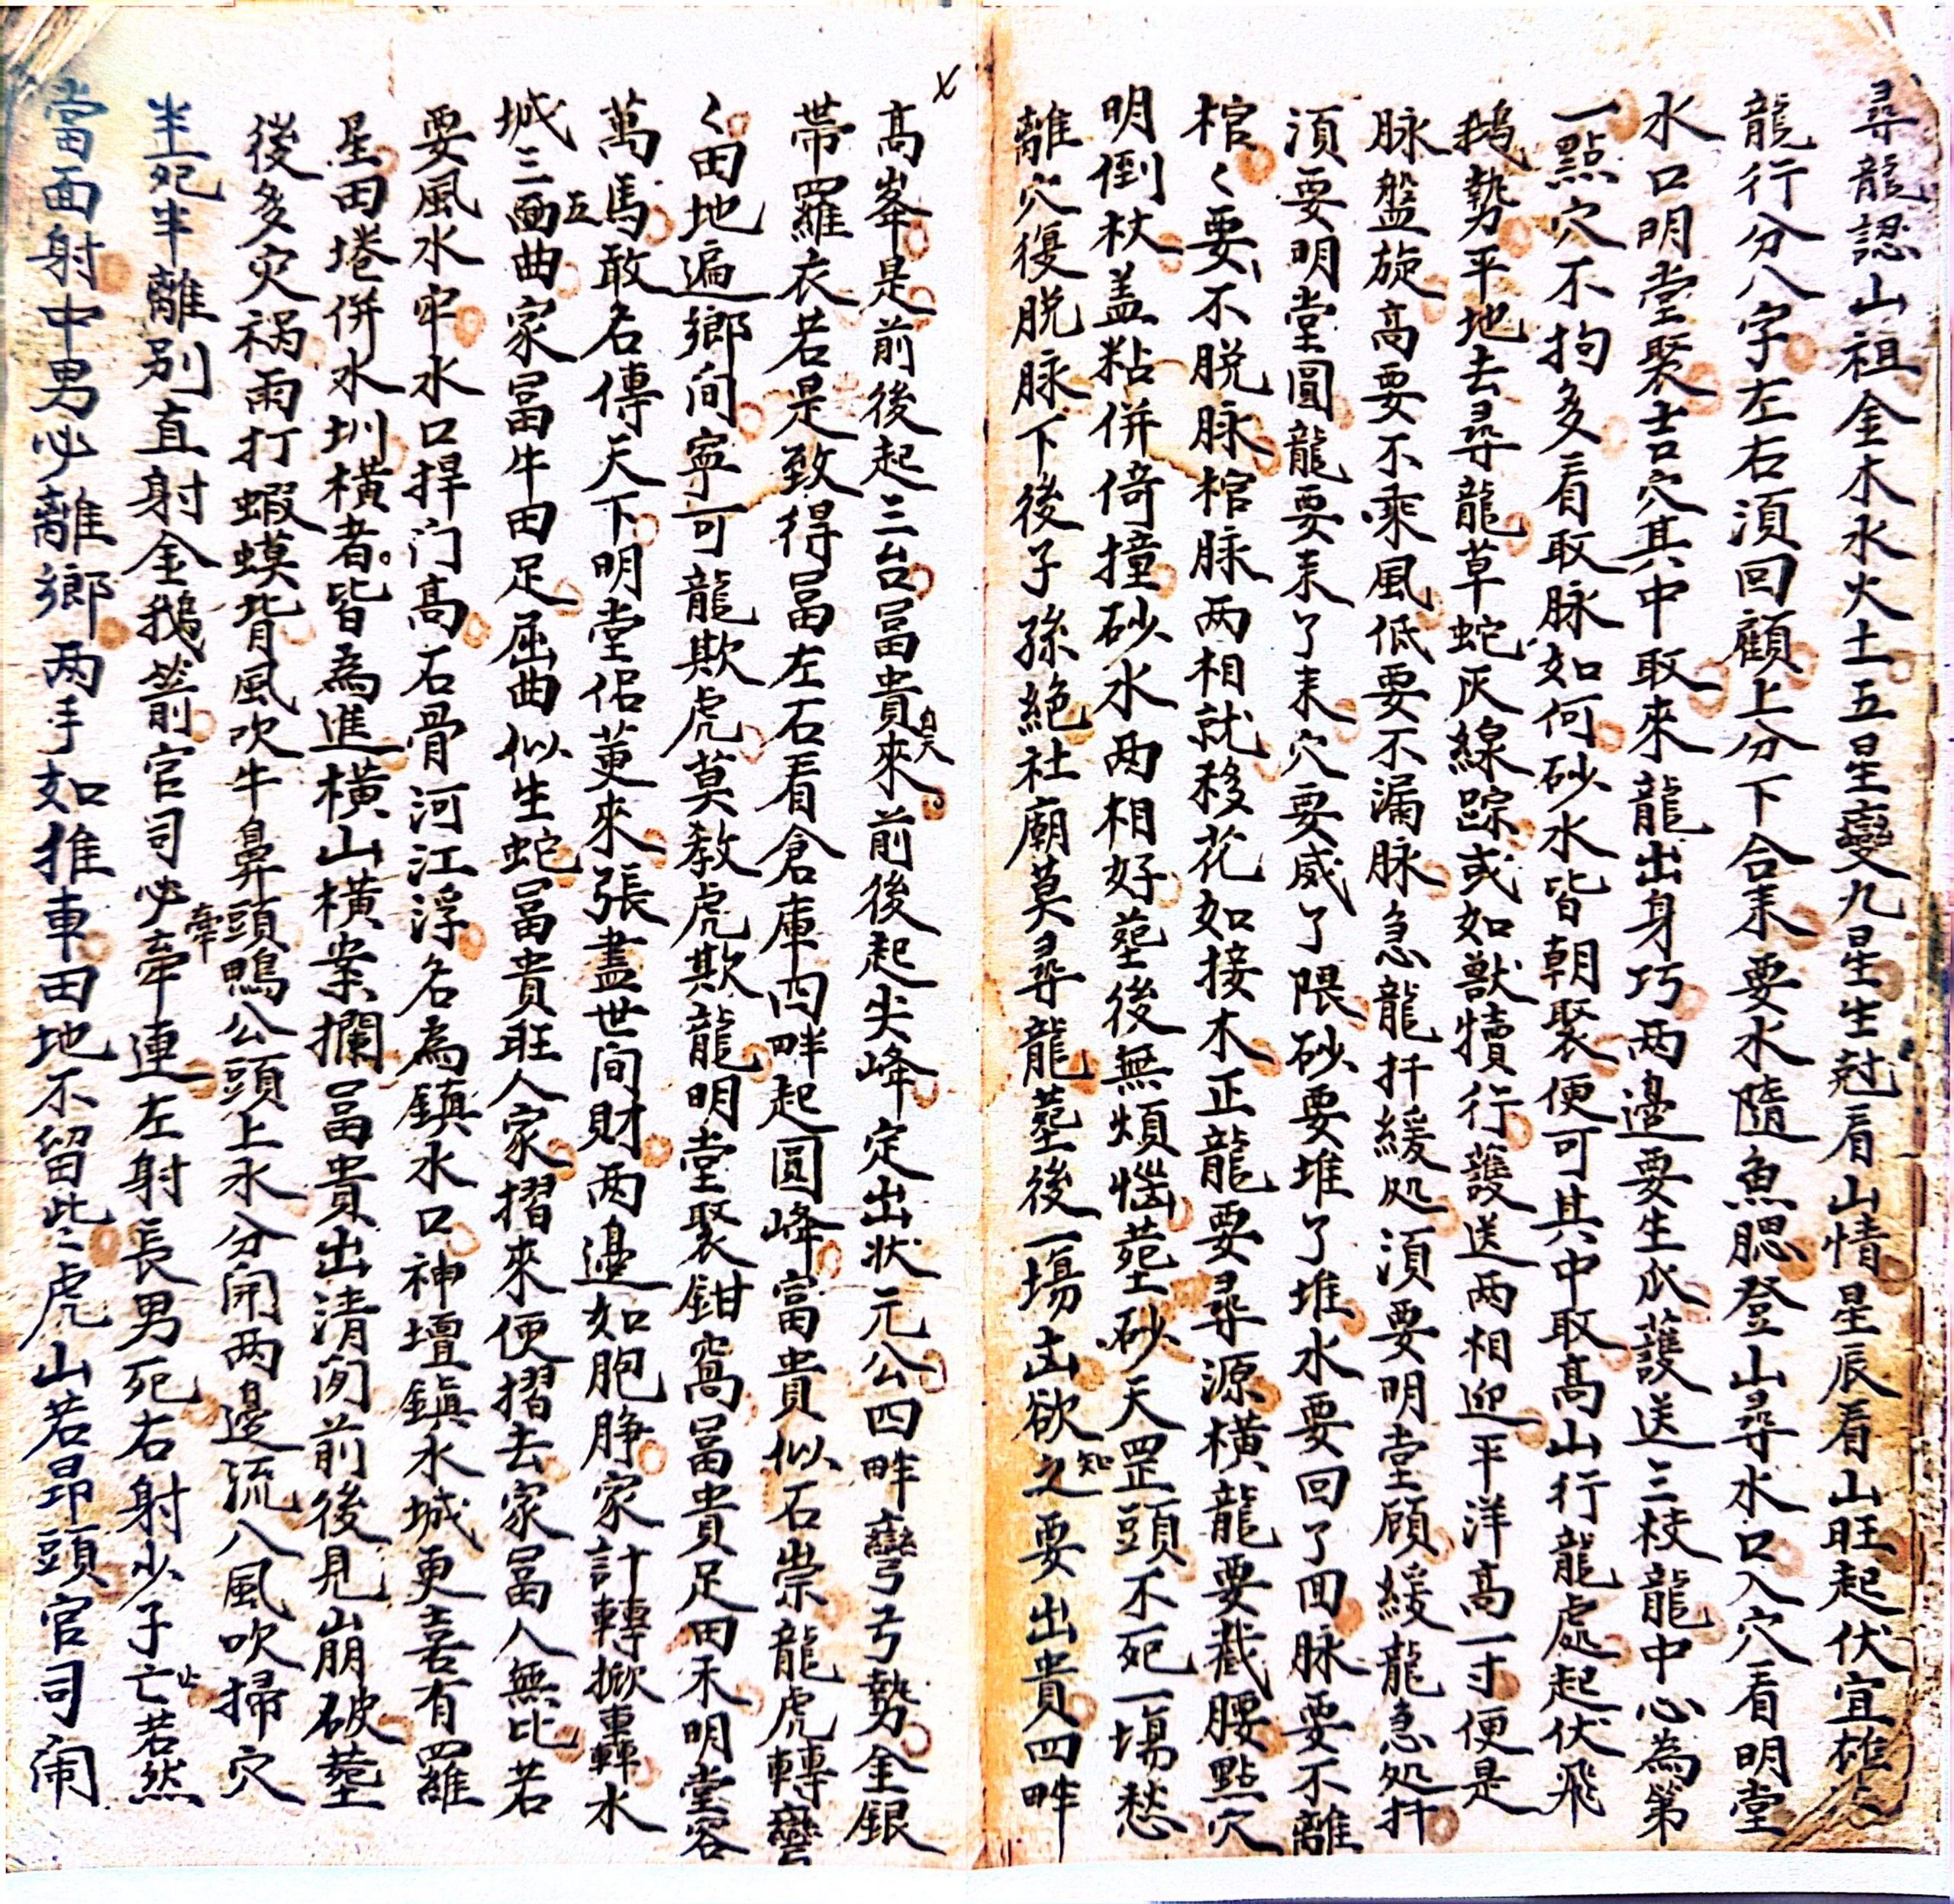 尋龍認山祖金木水火土五星變九星生尅看山情星辰看山旺起伏宜雄
龍行分八字左右湏回顧上分下合耒要水隨魚腮登山尋水口入穴看明堂
水口明堂聚吉穴其中取來龍出身巧两邉要生爪護送三枝龍中心為第
一點穴不拘多看取脉如何砂水皆朝聚便可其中取髙山行龍處起伏飛
鵝勢平地去尋龍草蛇灰線踪或如獸犢行護送两相迎平洋髙一寸便是
脉盤旋高要不乘風低要不漏脉急龍扦緩処湏要明堂顧緩龍急処扦
湏要明堂圓龍要耒了耒穴要威了隈砂要堆了堆水要回了囬脉要不離
棺く要不脱脉棺脉两相就移花如接木正龍要尋源橫龍要截腰點穴
明倒杖盖粘併倚撞砂水两相好塟後無煩惱塟砂天罡頭不死一塲愁
離穴復脱脉下後子孫絶社廟莫尋龍塟後一塲凶欲知之要出貴四畔
高峯是前後起三台冨貴自天來前後起尖峰定出状元公四畔彎弓勢金銀
帶羅衣若是致得冨左右看倉庫四畔起圓峰富貴似石崇龍虎轉彎
く田地遍鄉间寧可龍欺虎莫教虎欺龍明堂聚鉗窩冨貴足田禾明堂容
萬馬敢名傳天下明堂侶萐來張盡世间財两邉如胞脝家計轉掀轟水
城三五面曲家冨牛田足屈曲似生蛇冨貴旺人家摺來便摺去家冨人無比若
要風水牢水口捍门髙石骨河江浮名為鎮水口神壇鎮水城更喜有羅
星田塂併水圳橫者皆為進橫山橫案攔冨貴出清闲前後見崩破塟
後多灾祸雨打蝦蟆背風吹牛鼻頭鴨公頭上水分開两邉流八風吹掃穴
半死半離别直射金鵝箭官司必牽牽連左射長男死右射少子亡若然
當面射中男必離鄉两手如推車田地不留些虎山若昂頭官司闹